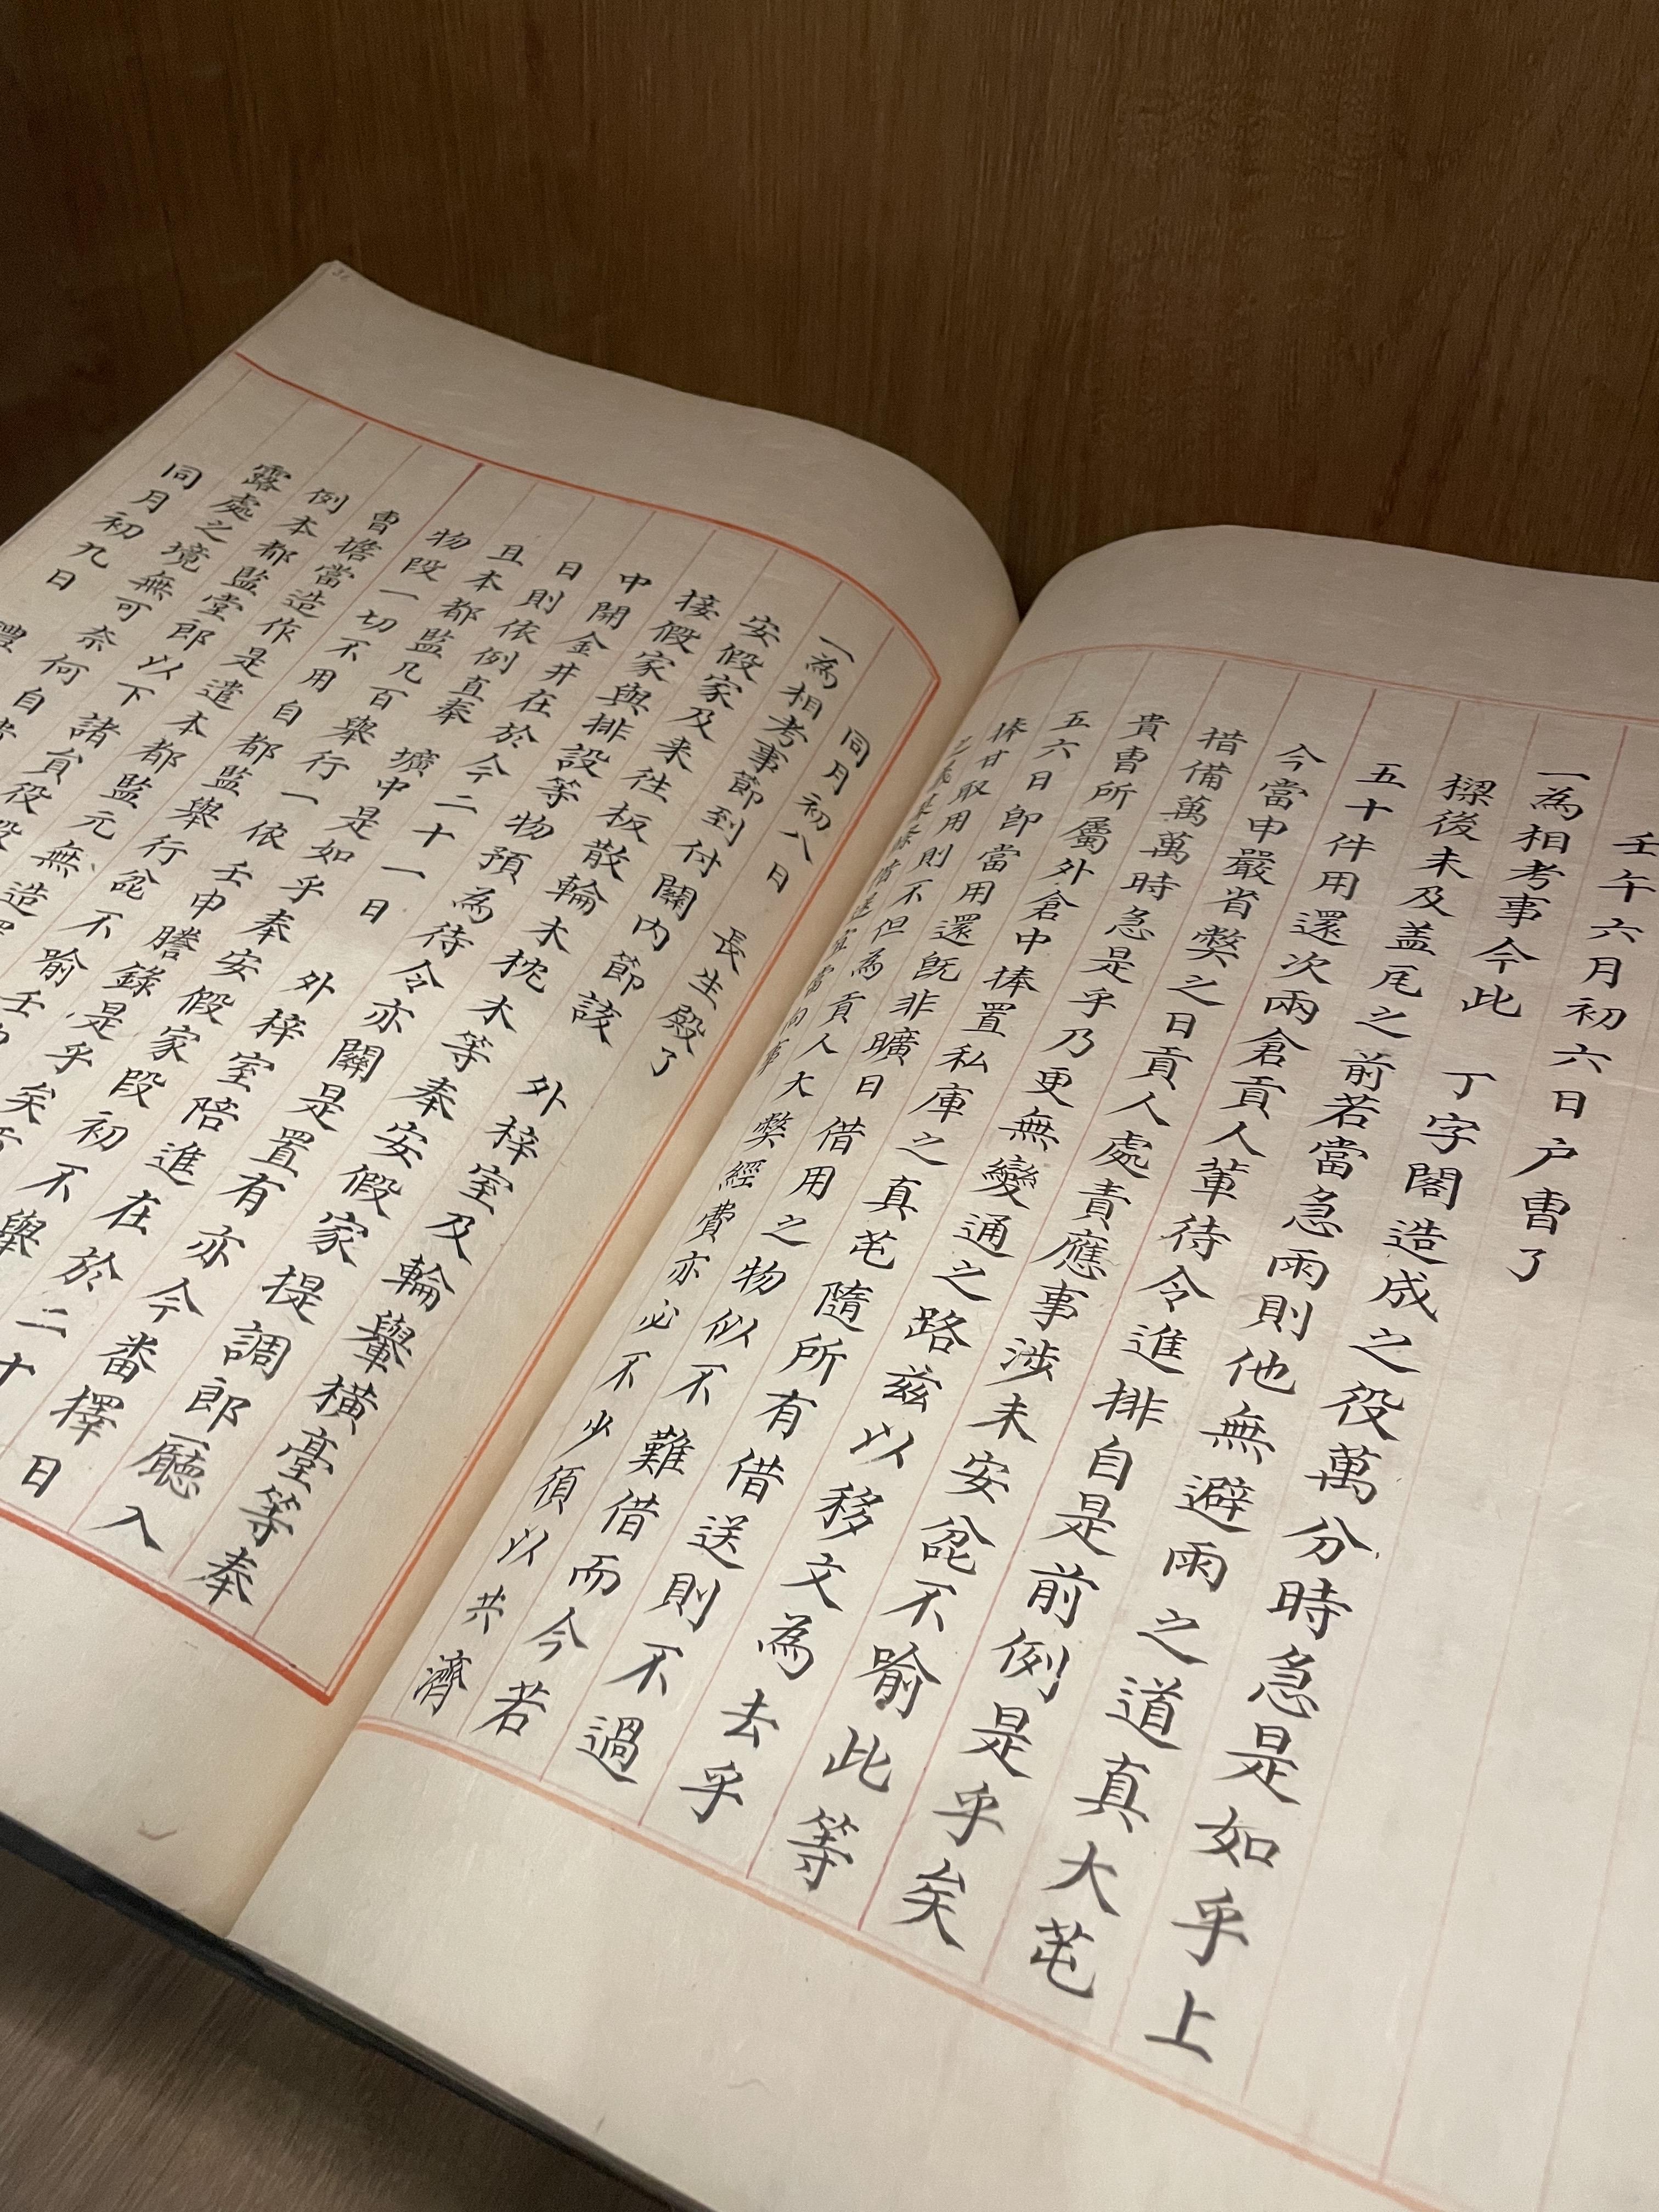 壬午六月初六日户曹了
一為相考事今此 丁字閣造成之役萬分時急是如乎上
樑後未及盖瓦之前若當急雨則他無避雨之道真大芚
五十件用還次兩倉貢人輩待令進排自是前例是乎矣
今當申嚴省獘之日貢人處責應事涉未安兺不喻此等
措備萬萬時急是乎乃更無變通之路茲以移文為去乎
貴曹所屬外倉中捧置私庫之真芚隨所有借送則不過
五六日即當用還既非曠日借用之物似不難借而今若
捧甘取用則不但為貢人大獘經費亦必不少須以共濟
同月初八日 長生殿了
一為相考事節到付關內節該 外梓室及輪轝橫臺等奉
安假家及来往板散輪木枕木等奉安假家提調郎廳入
接假家與排設等物預為待令亦關是置有亦今番擇日
中開金井在於今二十一日 外梓室陪進在於二十
日則依例直奉 壙中是如乎奉安假家段初不舉
且本都監凡百舉行一依 壬申謄錄是乎矣
物段一切不用自都監舉行兺不喻壬
曹擔當造作是遣本都監元無造
例本都監堂郎以下諸員役段
露處之境無可奈何自
同月初九日 禮